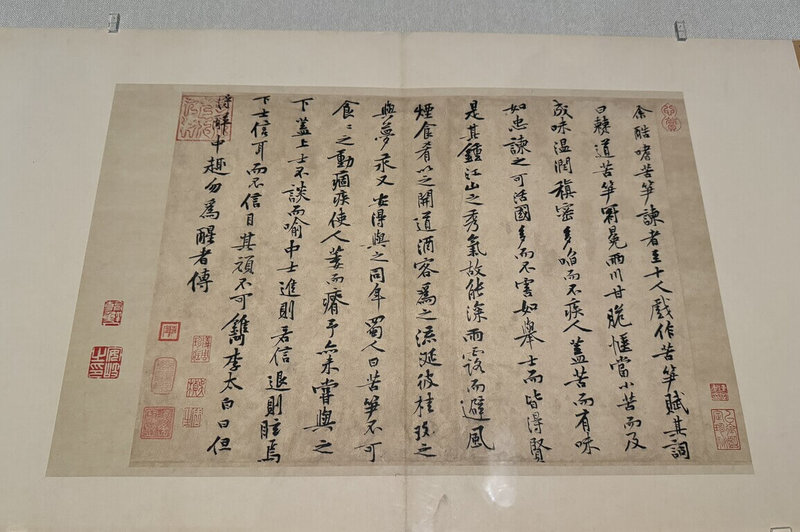 余酷嗜苦笋諫者至十人戲作苦笋賦其詞
曰僰道苦笋冠冕兩川甘脆愜當小苦而及
成味温潤稹密多啗而不疾人蓋苦而有味
如忠諫之可活國多而不害如舉士而皆得賢
是其鍾江山之秀氣故能深雨露而避風
煙食肴以之開道酒客為之流涎彼桂玫之
與夢汞又安得與之同年蜀人曰苦笋不可
食食之動痼疾使人萎而瘠予亦未嘗與之
下蓋上士不談而喻中士進則若信退則眩焉
下士信耳而不信目其頑不可鐫李太白曰但
得醉中趣勿為醒者傳